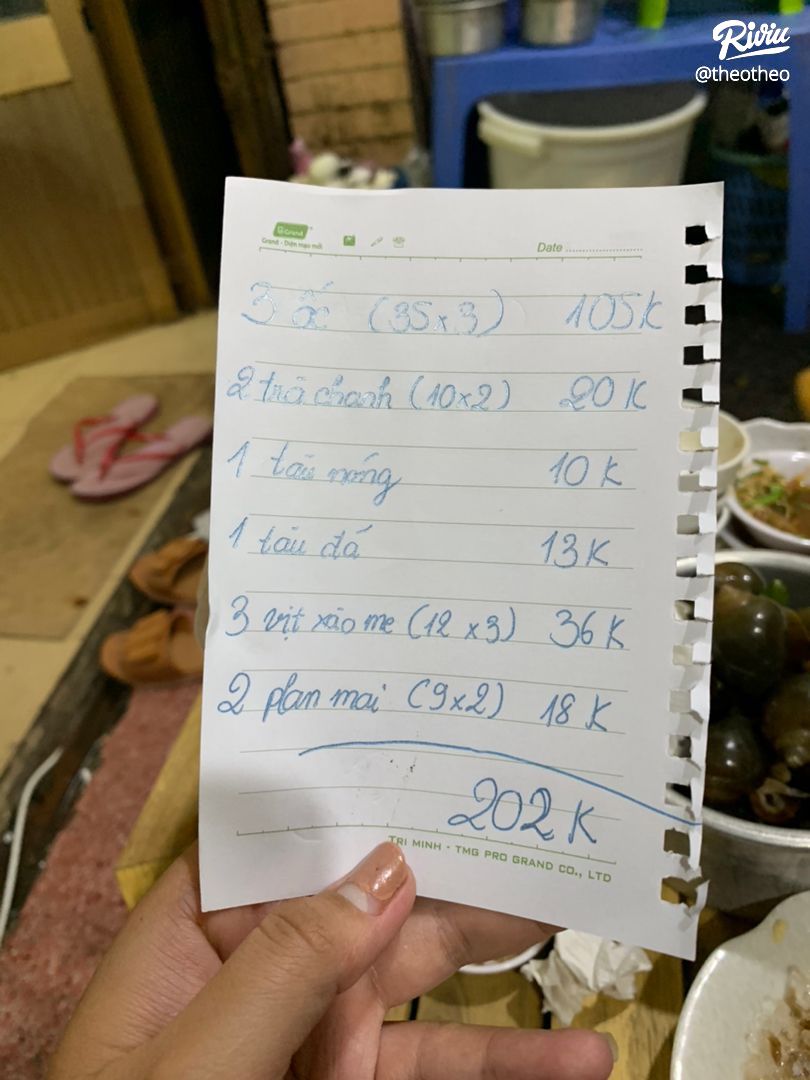 Riviu
@theotheo
Grand
Grand - Diện mạo mới
Date
3 ốc (35x3) 105K
2 trà chanh (10x2) 20K
1 tàu nóng 10K
1 tàu đá 13K
3 vịt xào me (12x3) 36K
2 plan mai (9x2) 18K
202K
TRI MINH - TMG PRO GRAND CO., LTD